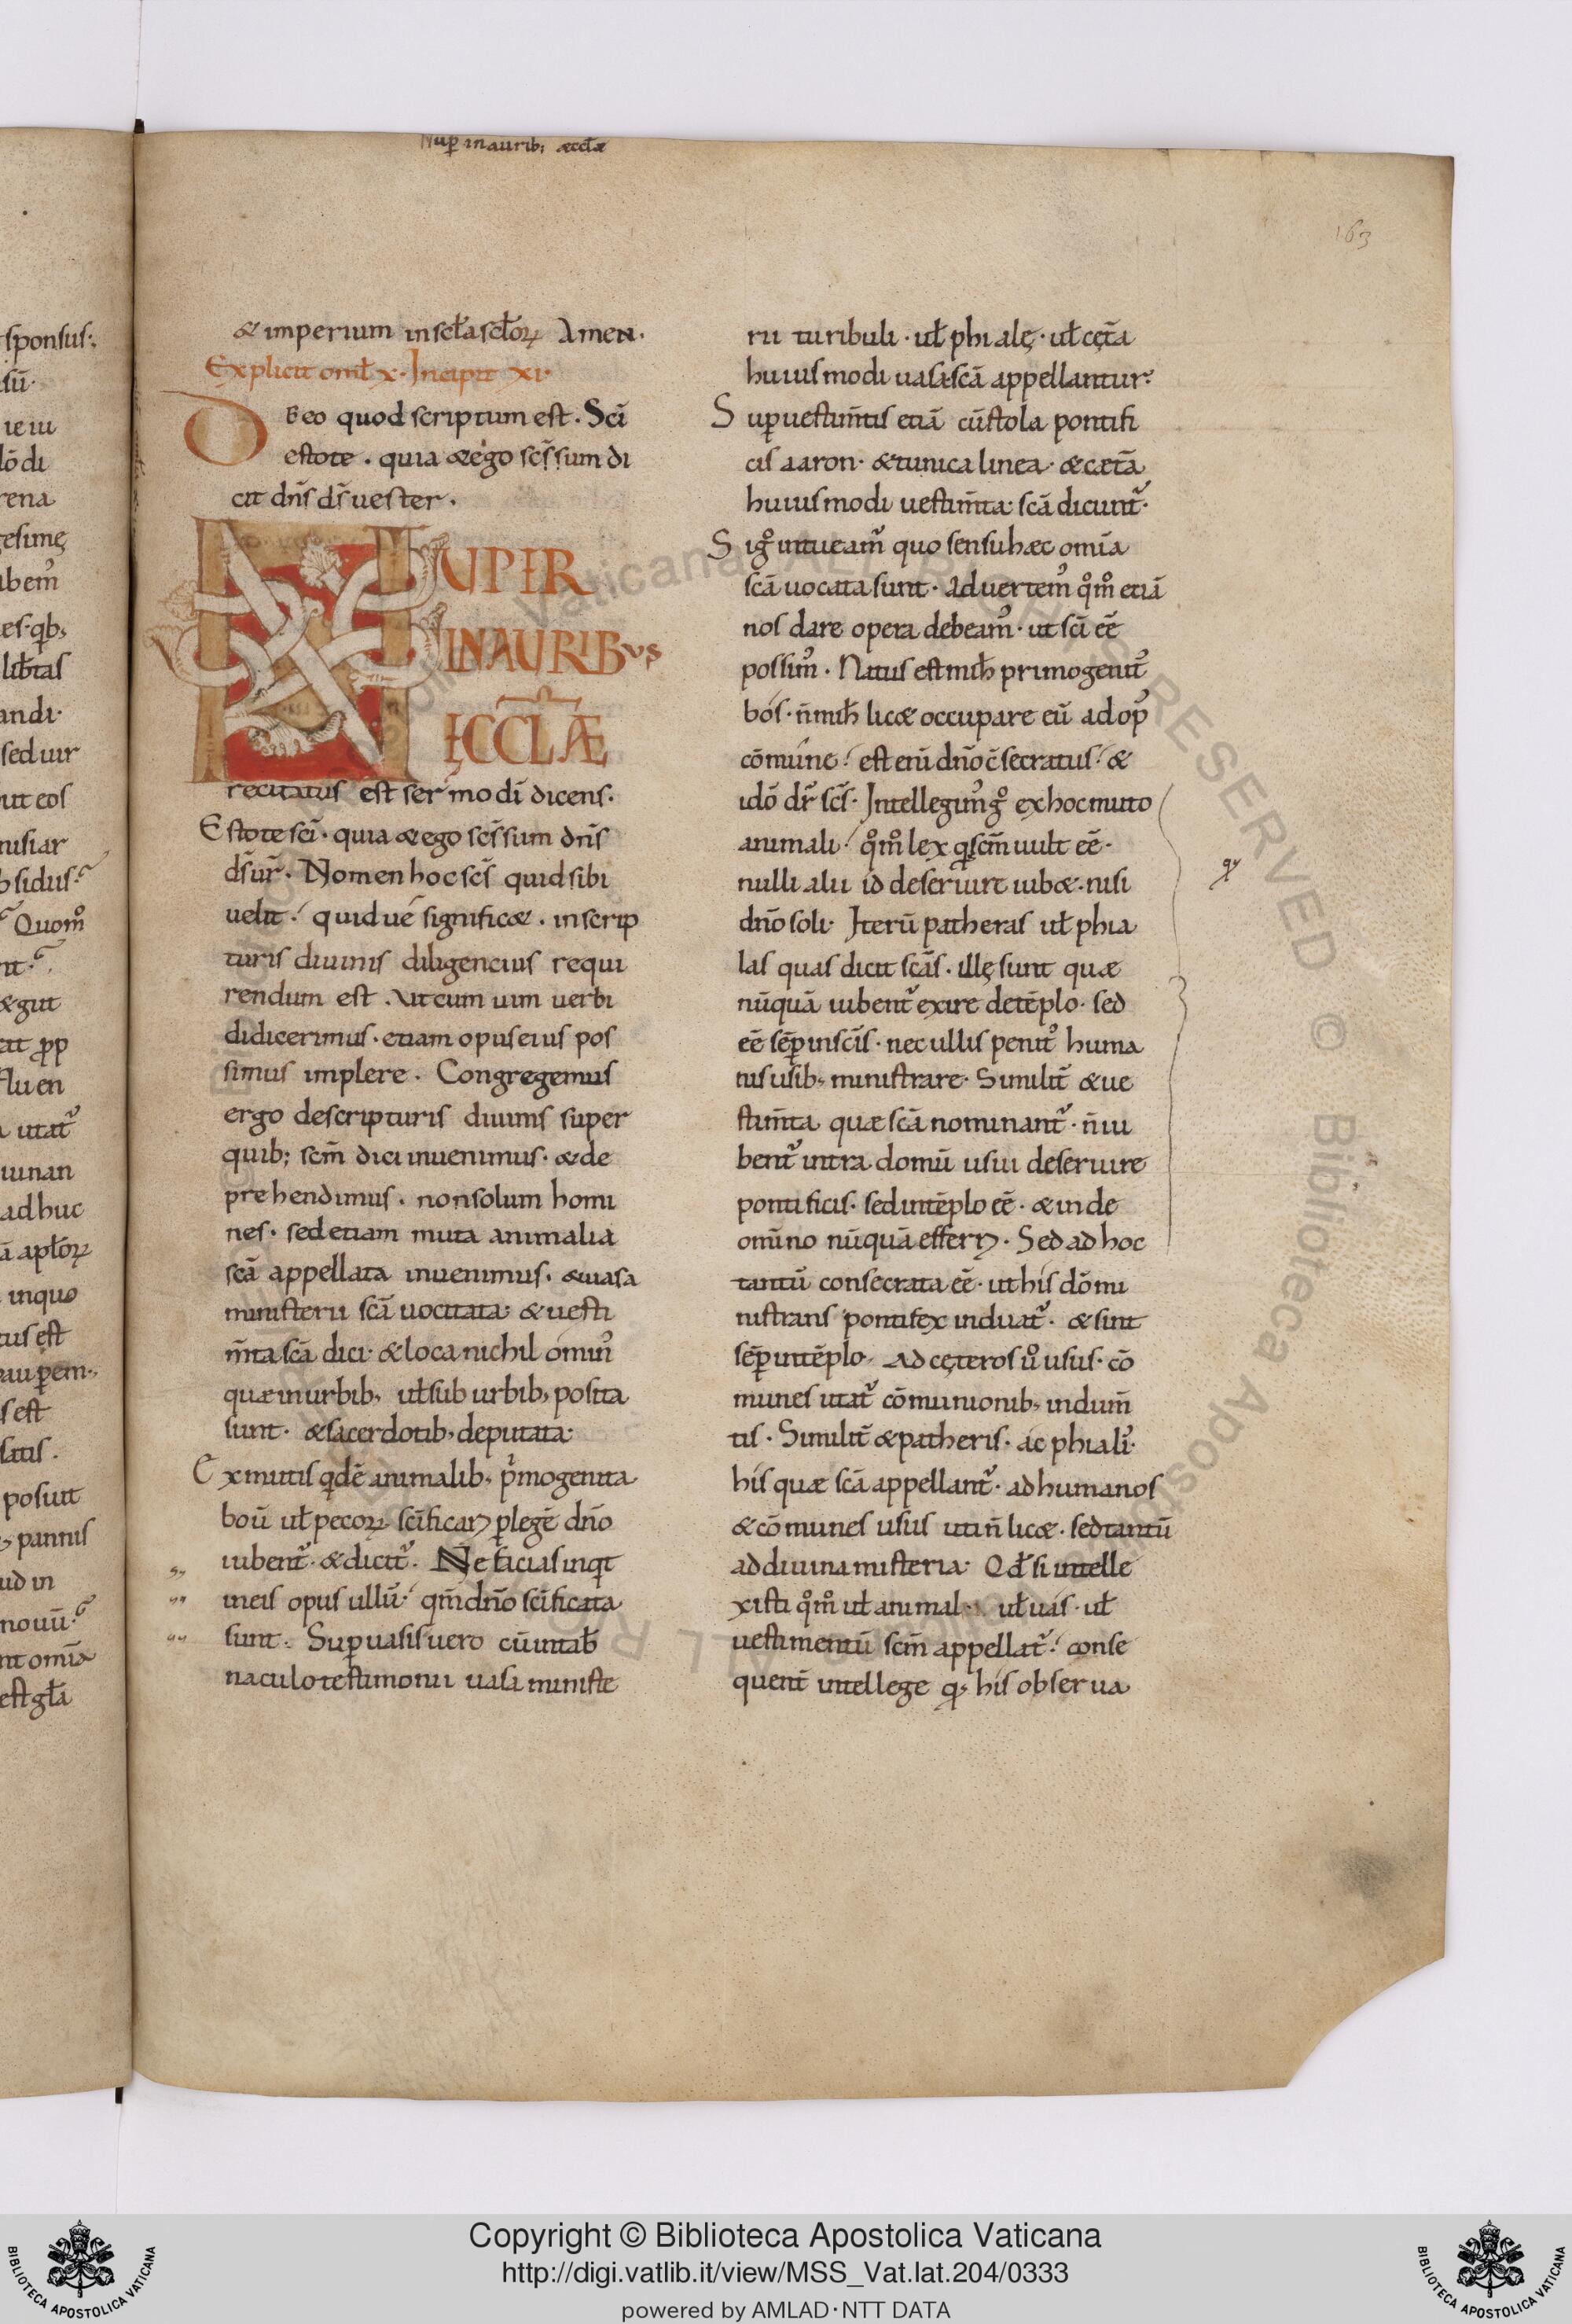 Nuꝑ in aurib; æccl̄æ
163
& imperium in scl̄a scl̄oꝝ Amen.
Explicit oml̄ x. Incipit xi.
DE eo quod scriptum est. Sc̄i
estote. quia & ego sc̄s sum di
cit dn̄s ds̄ uester.
NUPER
IN AURIBVS
ĘCCLÆ
recitatus est sermo dī dicens.
Estote sc̄i. quia & ego sc̄s sum dn̄s
ds̄ ur̄. Nomen hoc sc̄s quid sibi
uelit. quid ue significæ. in scrip
turis diuinis diligencius requi
rendum est. Ut cum uim uerbi
didicerimus. etiam opus eius pos
simus implere. Congregemus
ergo de scripturis diuinis super
quib; scm̄ dici inuenimus. & de
prehendimus. non solum homi
nes. sed etiam muta animalia
scā appellata inuenimus. & uasa
ministerii scā uocitata. & uesti
m̄ta scā dici. & loca nichil omin᷒
quæ in urbib, ul̄ suburbib, posita
sunt. & sacerdotib, deputata.
Ex mutis qdē animalib, pͥmogenita
boū ul̄ pecoꝝ sc̄ificaꝛ ꝑ legē dn̄o
iubent᷑. & dicit᷑. Ne facias inqt
in eis opus ullū. qm̄ dn̄o sc̄ificata
sunt. Suꝑ uasis uero cū in tab̄
naculo testimonii uasa ministe
rii turibuli. ul̄ phialę. ul̄ cętā
huiusmodi uasa scā appellantur.
Suꝑ uestim̄tis etiā cū stola pontifi
cis aaron. & tunica linea. & cætā
huiusmodi uestim̄ta scā dicunt᷑.
Sigͦ intueam᷑ quo sensu hæc omīa
scā uocata sunt. Aduertem᷒ qͦmͦ etiā
nos dare opera debeam᷒. ut sc̄i eē
possim᷒. Natus est mih̄ primogenit᷒
bós. n̄ mih̄ licæ occupare eū ad op᷒
cōmúne. est enī dn̄o c̄secratus. &
idō dr̄ sc̄s. Intellegim᷒ gͦ ex hoc muto
animali. qͦmͦ lex qͥ scm̄ uult eē.
nulli alii id deseruire iubæ. nisi
dn̄o soli. Iterū patheras ul̄ phia
las quas dicit scās. illę sunt quæ
nūquā iubent᷑ exire de tēplo. sed
eē sēꝑ in scīs. nec ullis penit᷒ huma
nis usib, ministrare. Similit̄ & ue
stim̄ta quæ scā nominant᷑. n̄ iu
bent᷑ intra domū usui deseruire
pontificis. sed in tēplo eē. & inde
omīno nūquā efferꝛ. Sed ad hoc
tantū consecrata eē. ut his dō mi
nistrans pontifex induat᷑. & sint
sēꝑ in tēplo. Ad cęteros uͦ usus. cō
munes utat᷑ cōmunionib, indum̄
tis. Similit̄ & patheris. ac phialis.
his quæ scā appellant᷑. ad humanos
& cōmunes usus uti n̄ licæ. sed tantū
ad diuina misteria. Qd̄ si intelle
xisti qͦmͦ ul̄ animal. ul̄ uás. ul̄
uestimentū scm̄ appellat᷑. conse
quent̄ intellege qͥ, his obserua
Copyright © Biblioteca Apostolica Vaticana
http://digi.vatlib.it/view/MSS_Vat.lat.204/0333
powered by AMLAD·NTT DATA
BIBLIOTECA APOSTOLICA VATICANA
BIBLIOTECA APOSTOLICA VATICANA